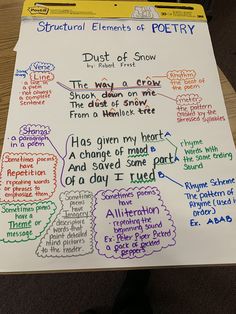 Post-it
Structural Elements of POETRY
Dust of Snow
by: Robert Frost
Verse
Line
a line in a
poem - not
always a
complete
sentence
The way a crow
Shook down on me
The dust of snow
From a Hemlock tree
Rhythm
the beat of
the poem
meter
the pattern of
caused by the
stressed syllables
Stanza
a paragraph
in a poem
Has given my heart A
A change of mood B
And saved some part A
of a day I rued B
rhyme
words with
the same ending
Sound
Rhyme Scheme
The pattern of
Rhyme (used in
order)
Ex. ABAB
Sometimes poems
have
Repetition
repeating words
or phrases to
emphasize them
Sometimes poems
have a
Theme or
message
Sometimes
poems have
Imagery
descriptive
words that
paint detailed
mind pictures
to the reader.
Sometimes poems have
Alliteration
- repeating the
beginning sound
Ex: Peter Piper Picked
a pack of pickled
peppers